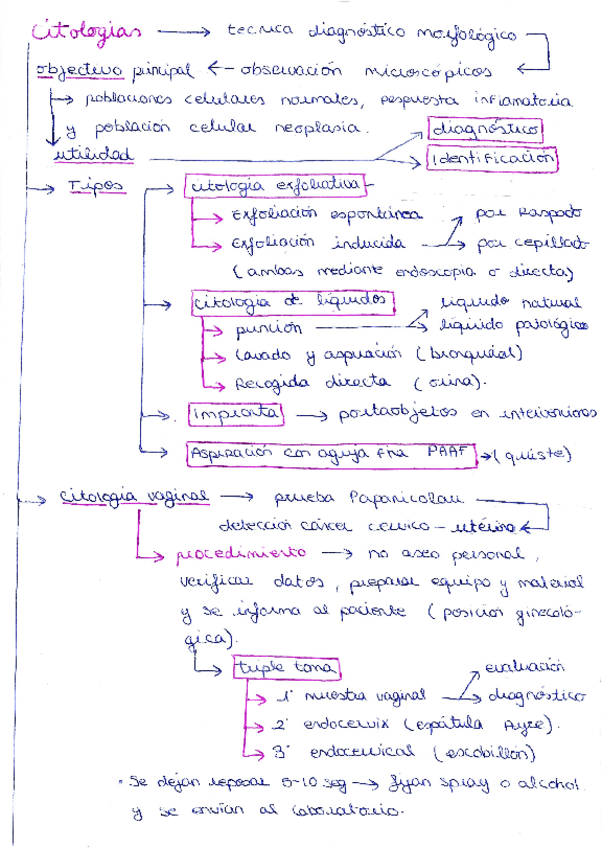 citologias → tecnica diagnóstico morfológico
objectivo principal ← observación microscópicos
→ poblaciones celulares normales, respuesta inflamatoria
y población celular neoplasia.
diagnóstico
utilidad
Identificación
→ Tipos
citología exfoliativa
→ Exfoliación espontánea
por Raspado
→ Exfoliación inducida → por cepillado
(ambas mediante endoscopia o directa)
citología de líquidos
líquido natural
→ punción → líquido patológico
→ Lavado y aspiración (bronquial)
→ Recogida directa (orina).
→ Impronta → portaobjetos en intervenciones
→ Aspiración con aguja fina PAAF → (quiste)
→ Citología vaginal → prueba Papanicolau
detección cáncer cervico-uterino ←
→ procedimiento → no aseo personal,
verificar datos, preparar equipo y material
y se informa al paciente (posición ginecoló-
gica).
→ triple toma
evaluación
→ 1ª muestra vaginal → diagnóstico
→ 2ª endocervix (espátula Ayre).
→ 3ª endocervical (escobillón)
• Se dejan reposar 5-10 seg → fijan spray o alcohol
y se envían al laboratorio.